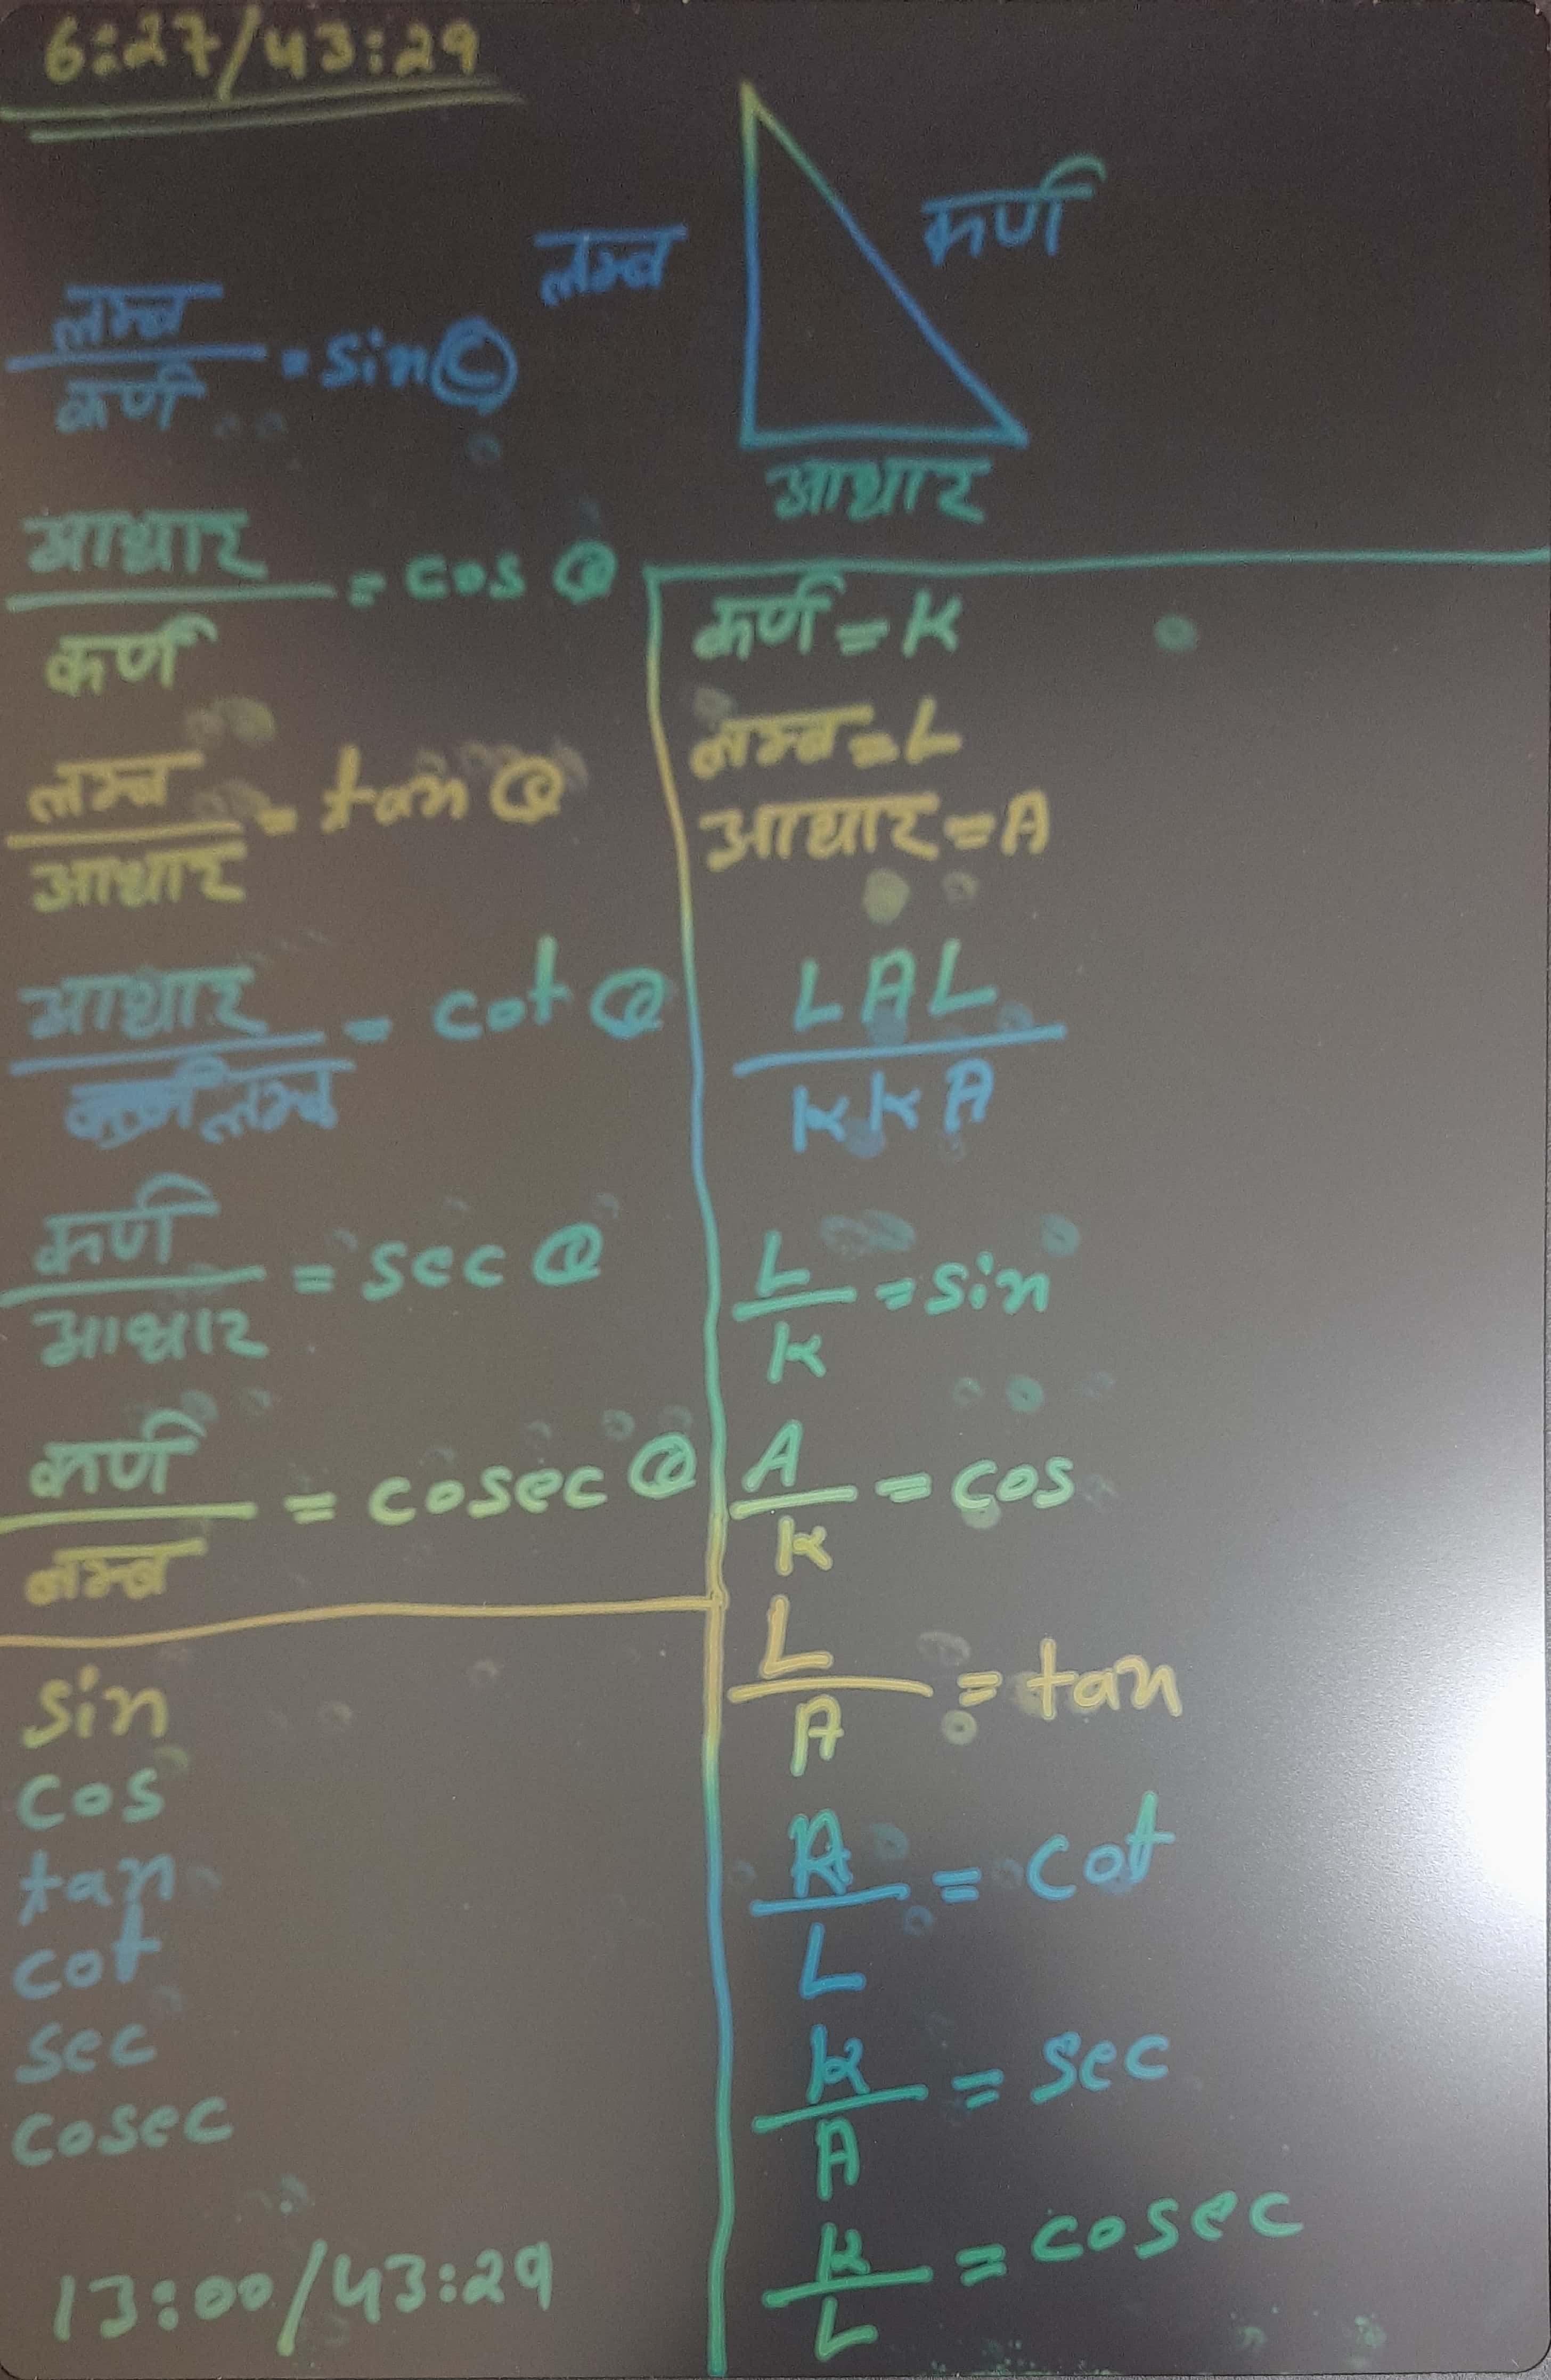 6:27/43:29
लम्ब
कर्ण
आधार
लम्ब
कर्ण
= sin
आधार
कर्ण
= cos
लम्ब
आधार
= tan
आधार
लम्ब
= cot
कर्ण
आधार
= sec
कर्ण
लम्ब
= cosec
sin
cos
tan
cot
sec
cosec
13:00/43:29
कर्ण = K
लम्ब = L
आधार = A
L A L
K K A
L
K
= sin
A
K
= cos
L
A
= tan
A
L
= cot
K
A
= sec
K
L
= cosec